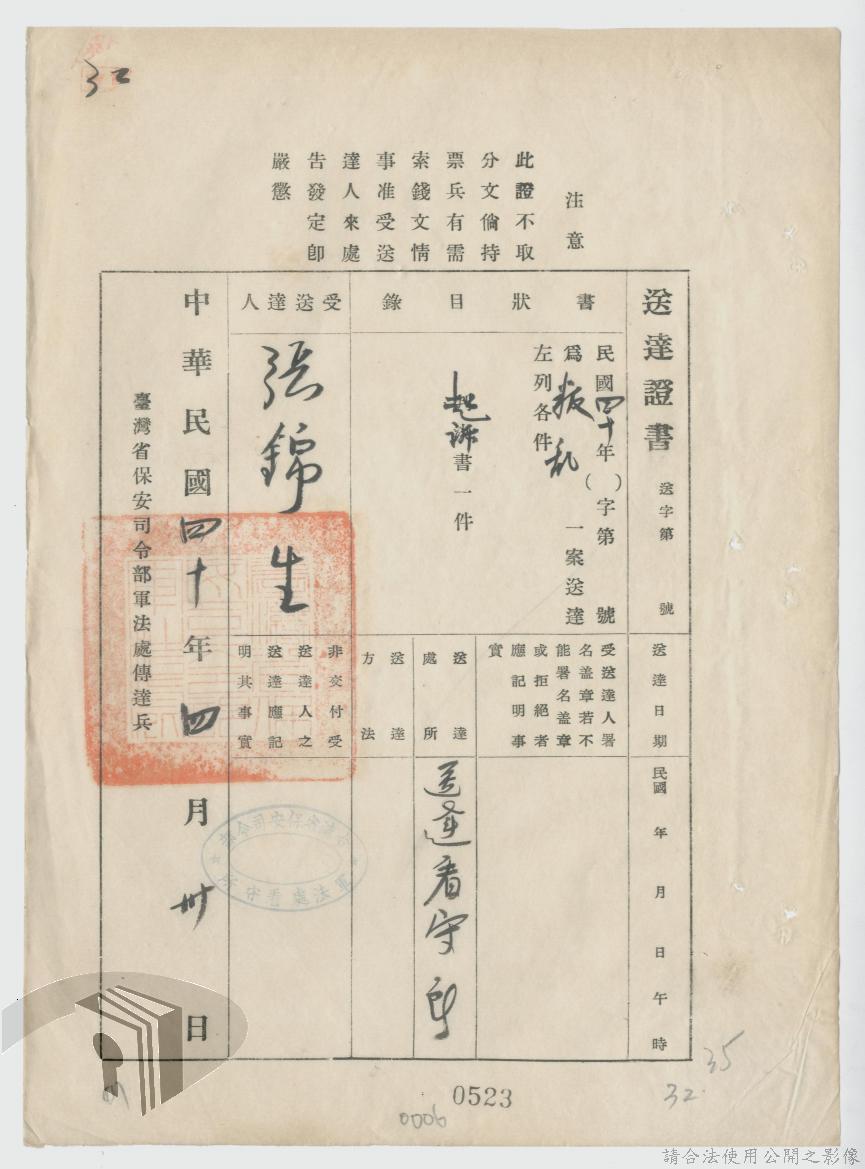 32
注意
此證不取
分文倘持
票兵有需
索錢文情
事准受送
達人來處
告發定卽
嚴懲
送達證書
送字第 號
送達日期
民國 年 月 日 午 時
書狀目錄
民國四十年( )字第 號
爲叛乱一案送達
左列各件
起訴書一件
受送達人署
名蓋章若不
能署名蓋章
或拒絕者
應記明事
實
送達
處所
送達看守所
送達
方法
受送達人
張錦生
非交付受
送達人之
送達應記
明其事實
中華民國四十年四月卅日
臺灣省保安司令部軍法處傳達兵
台湾省保安司令部
軍法處看守所
0523
0006
35
32
請合法使用公開之影像